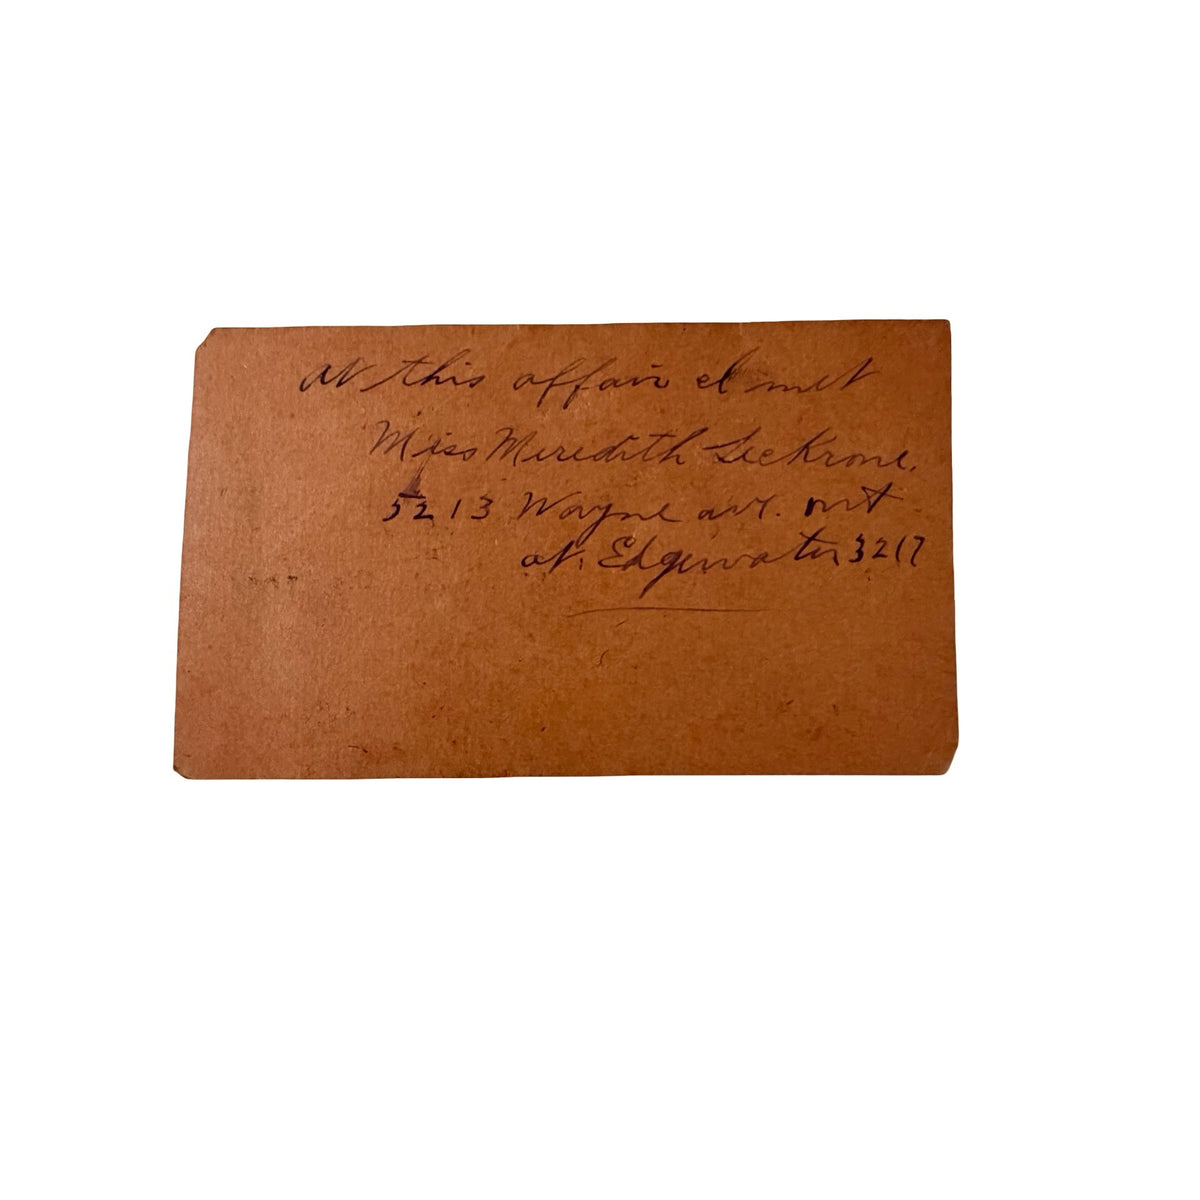 At this affair I met
Miss Meredith Leckrone.
5213 Wayne ave.
at. Edgewater 3217